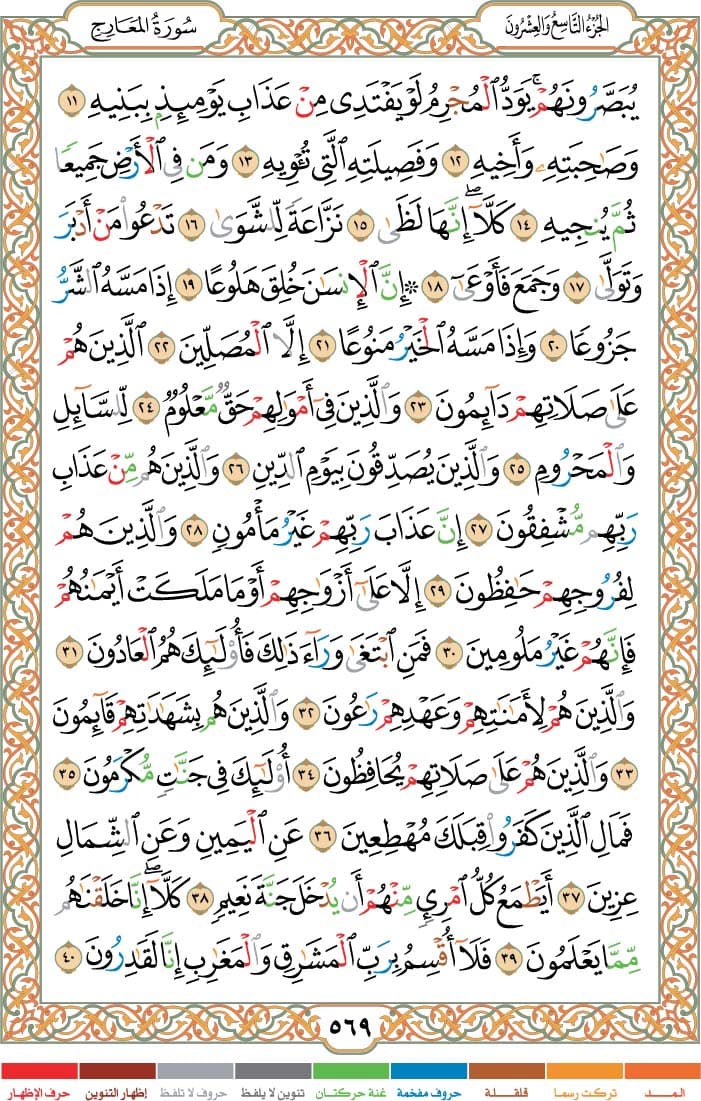 الجزء التاسع والعشرون
سورة المعارج
يُبَصَّرُونَهُمْ ۚ يَوَدُّ الْمُجْرِمُ لَوْ يَفْتَدِى مِنْ عَذَابِ يَوْمِئِذٍۭ بِبَنِيهِ ١١
وَصَٰحِبَتِهِۦ وَأَخِيهِ ١٢ وَفَصِيلَتِهِ الَّتِى تُـْٔوِيهِ ١٣ وَمَن فِى الْأَرْضِ جَمِيعًا
ثُمَّ يُنجِيهِ ١٤ كَلَّآ ۖ إِنَّهَا لَظَىٰ ١٥ نَزَّاعَةً لِّلشَّوَىٰ ١٦ تَدْعُوا۟ مَنْ أَدْبَرَ
وَتَوَلَّىٰ ١٧ وَجَمَعَ فَأَوْعَىٰٓ ١٨ ۞ إِنَّ الْإِنسَٰنَ خُلِقَ هَلُوعًا ١٩ إِذَا مَسَّهُ الشَّرُّ
جَزُوعًا ٢٠ وَإِذَا مَسَّهُ الْخَيْرُ مَنُوعًا ٢١ إِلَّا الْمُصَلِّينَ ٢٢ الَّذِينَ هُمْ
عَلَىٰ صَلَاتِهِمْ دَآئِمُونَ ٢٣ وَالَّذِينَ فِىٓ أَمْوَٰلِهِمْ حَقٌّ مَّعْلُومٌ ٢٤ لِّلسَّآئِلِ
وَالْمَحْرُومِ ٢٥ وَالَّذِينَ يُصَدِّقُونَ بِيَوْمِ الدِّينِ ٢٦ وَالَّذِينَ هُم مِّنْ عَذَابِ
رَبِّهِم مُّشْفِقُونَ ٢٧ إِنَّ عَذَابَ رَبِّهِمْ غَيْرُ مَأْمُونٍ ٢٨ وَالَّذِينَ هُمْ
لِفُرُوجِهِمْ حَٰفِظُونَ ٢٩ إِلَّا عَلَىٰٓ أَزْوَٰجِهِمْ أَوْ مَا مَلَكَتْ أَيْمَٰنُهُمْ
فَإِنَّهُمْ غَيْرُ مَلُومِينَ ٣٠ فَمَنِ ابْتَغَىٰ وَرَآءَ ذَٰلِكَ فَأُو۟لَٰٓئِكَ هُمُ الْعَادُونَ ٣١
وَالَّذِينَ هُمْ لِأَمَٰنَٰتِهِمْ وَعَهْدِهِمْ رَٰعُونَ ٣٢ وَالَّذِينَ هُم بِشَهَٰدَٰتِهِمْ قَآئِمُونَ
٣٣ وَالَّذِينَ هُمْ عَلَىٰ صَلَاتِهِمْ يُحَافِظُونَ ٣٤ أُو۟لَٰٓئِكَ فِى جَنَّٰتٍ مُّكْرَمُونَ ٣٥
فَمَالِ الَّذِينَ كَفَرُوا۟ قِبَلَكَ مُهْطِعِينَ ٣٦ عَنِ الْيَمِينِ وَعَنِ الشِّمَالِ
عِزِينَ ٣٧ أَيَطْمَعُ كُلُّ امْرِئٍ مِّنْهُمْ أَن يُدْخَلَ جَنَّةَ نَعِيمٍ ٣٨ كَلَّآ ۖ إِنَّا خَلَقْنَٰهُم
مِّمَّا يَعْلَمُونَ ٣٩ فَلَآ أُقْسِمُ بِرَبِّ الْمَشَٰرِقِ وَالْمَغَٰرِبِ إِنَّا لَقَٰدِرُونَ ٤٠
٥٦٩
المـــد تركت رسما قلقـــلة حروف مفخمة غنة حركتان تنوين لا يلفظ حروف لا تلفظ إظهار التنوين حرف الإظهار